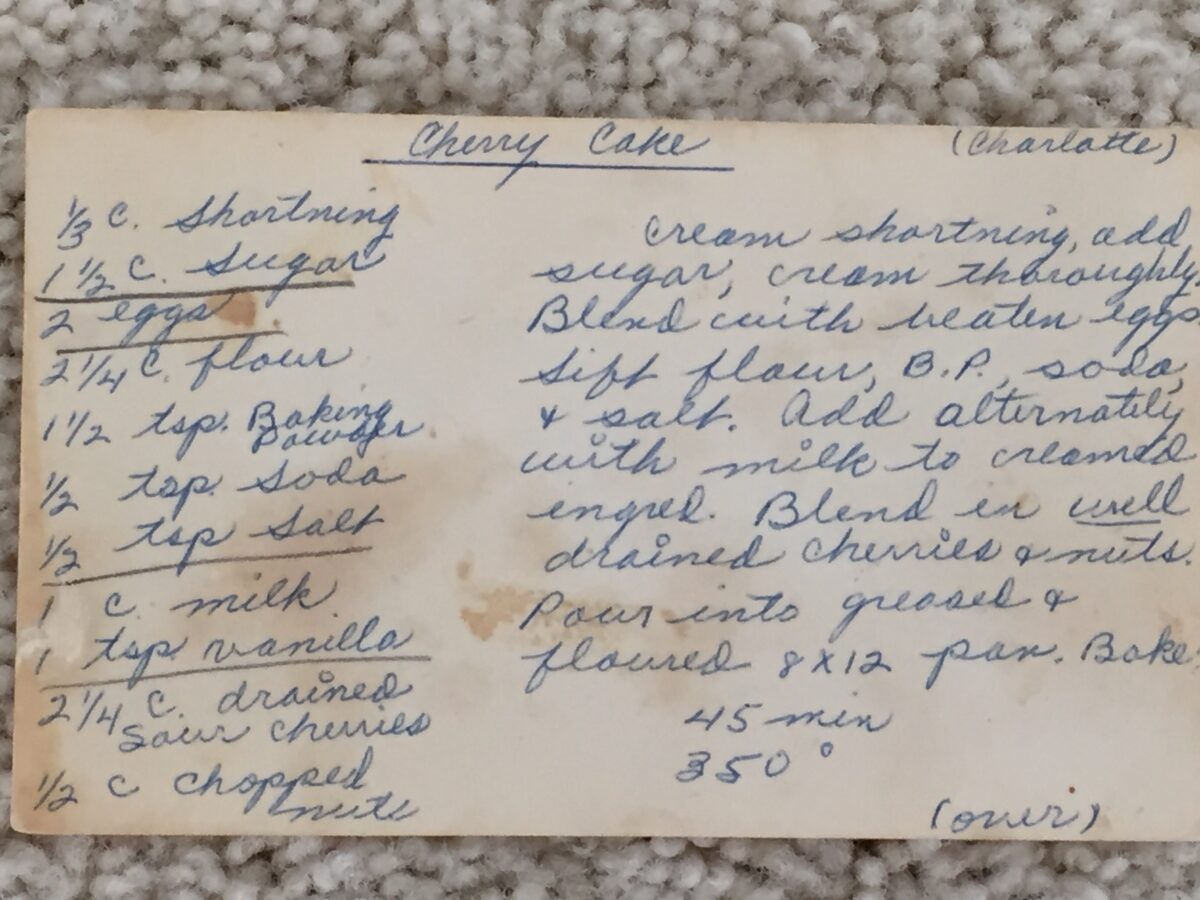 Cherry Cake (Charlotte)
1/3 C. Shortning
1 1/2 C. Sugar
2 eggs
2 1/4 C. flour
1 1/2 tsp. Baking
Powder
1/2 tsp. Soda
1/2 tsp Salt
1 C. milk
1 tsp. vanilla
2 1/4 C. drained
Sour Cherries
1/2 C Chopped
nuts
Cream shortning, add
sugar, cream thoroughly.
Blend with beaten eggs
Sift flour, B.P., soda,
& salt. Add alternately
with milk to creamed
ingred. Blend in well
drained Cherries & nuts.
Pour into greased &
floured 8x12 pan. Bake
45 min
350°
(over)